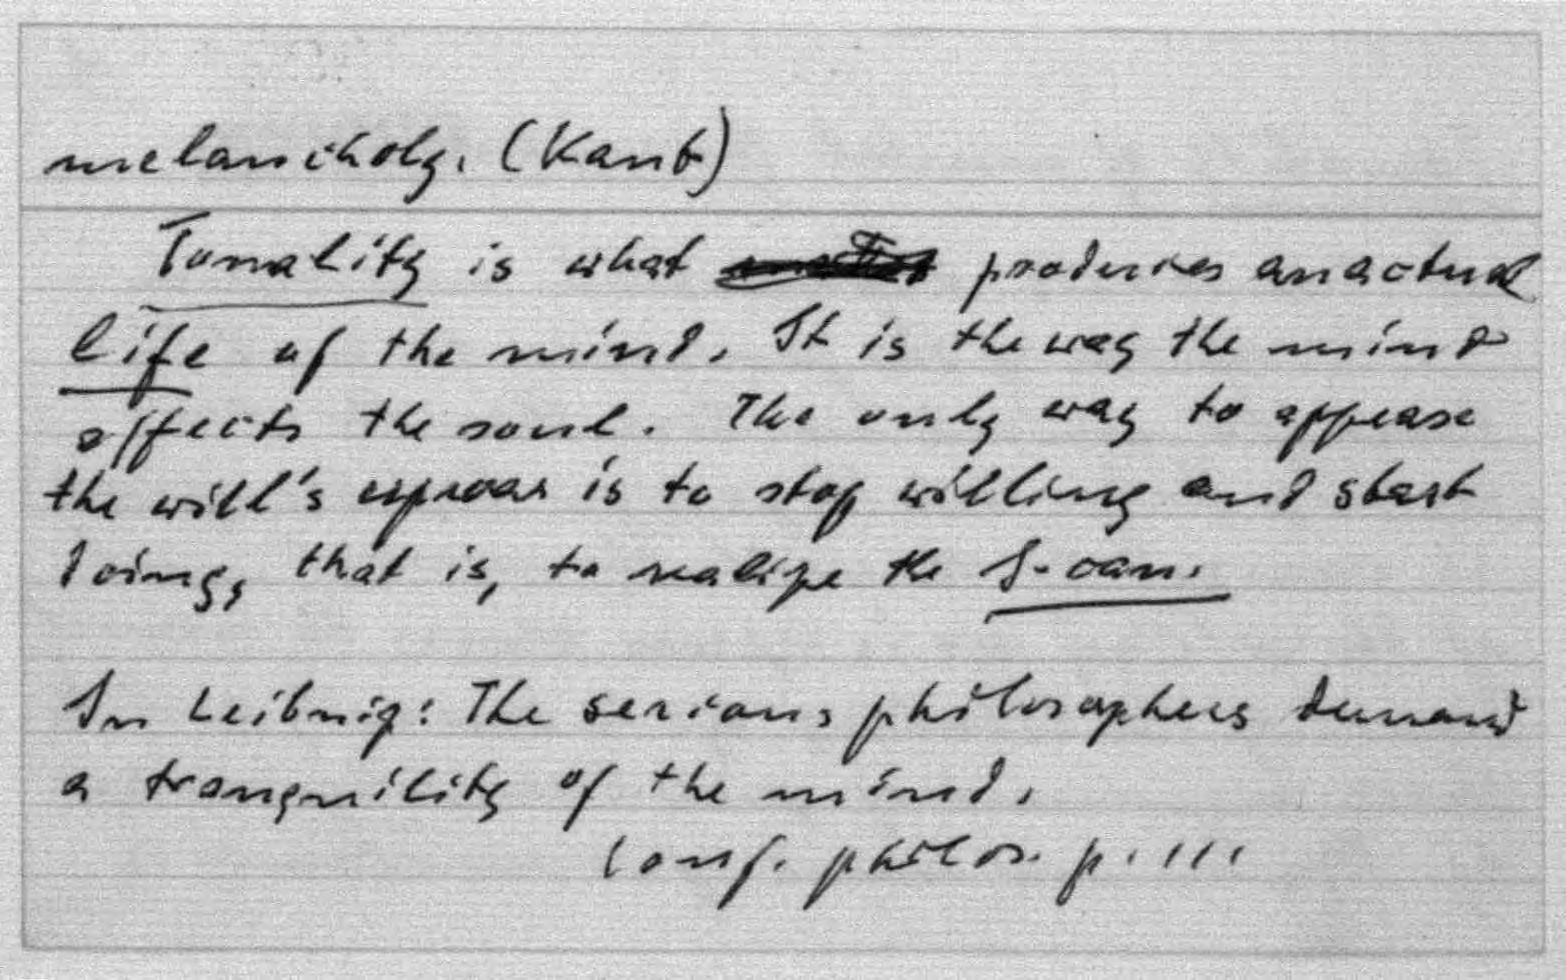 melancholy. (Kant)
Tonality is what produces an actual
life of the mind. It is the way the mind
affects the soul. The only way to appease
the will's uproar is to stop willing and start
doing, that is, to realize the I-can.
In Leibniz: The serious philosophers demand
a tranquility of the mind.
Conf. philos. p. 111